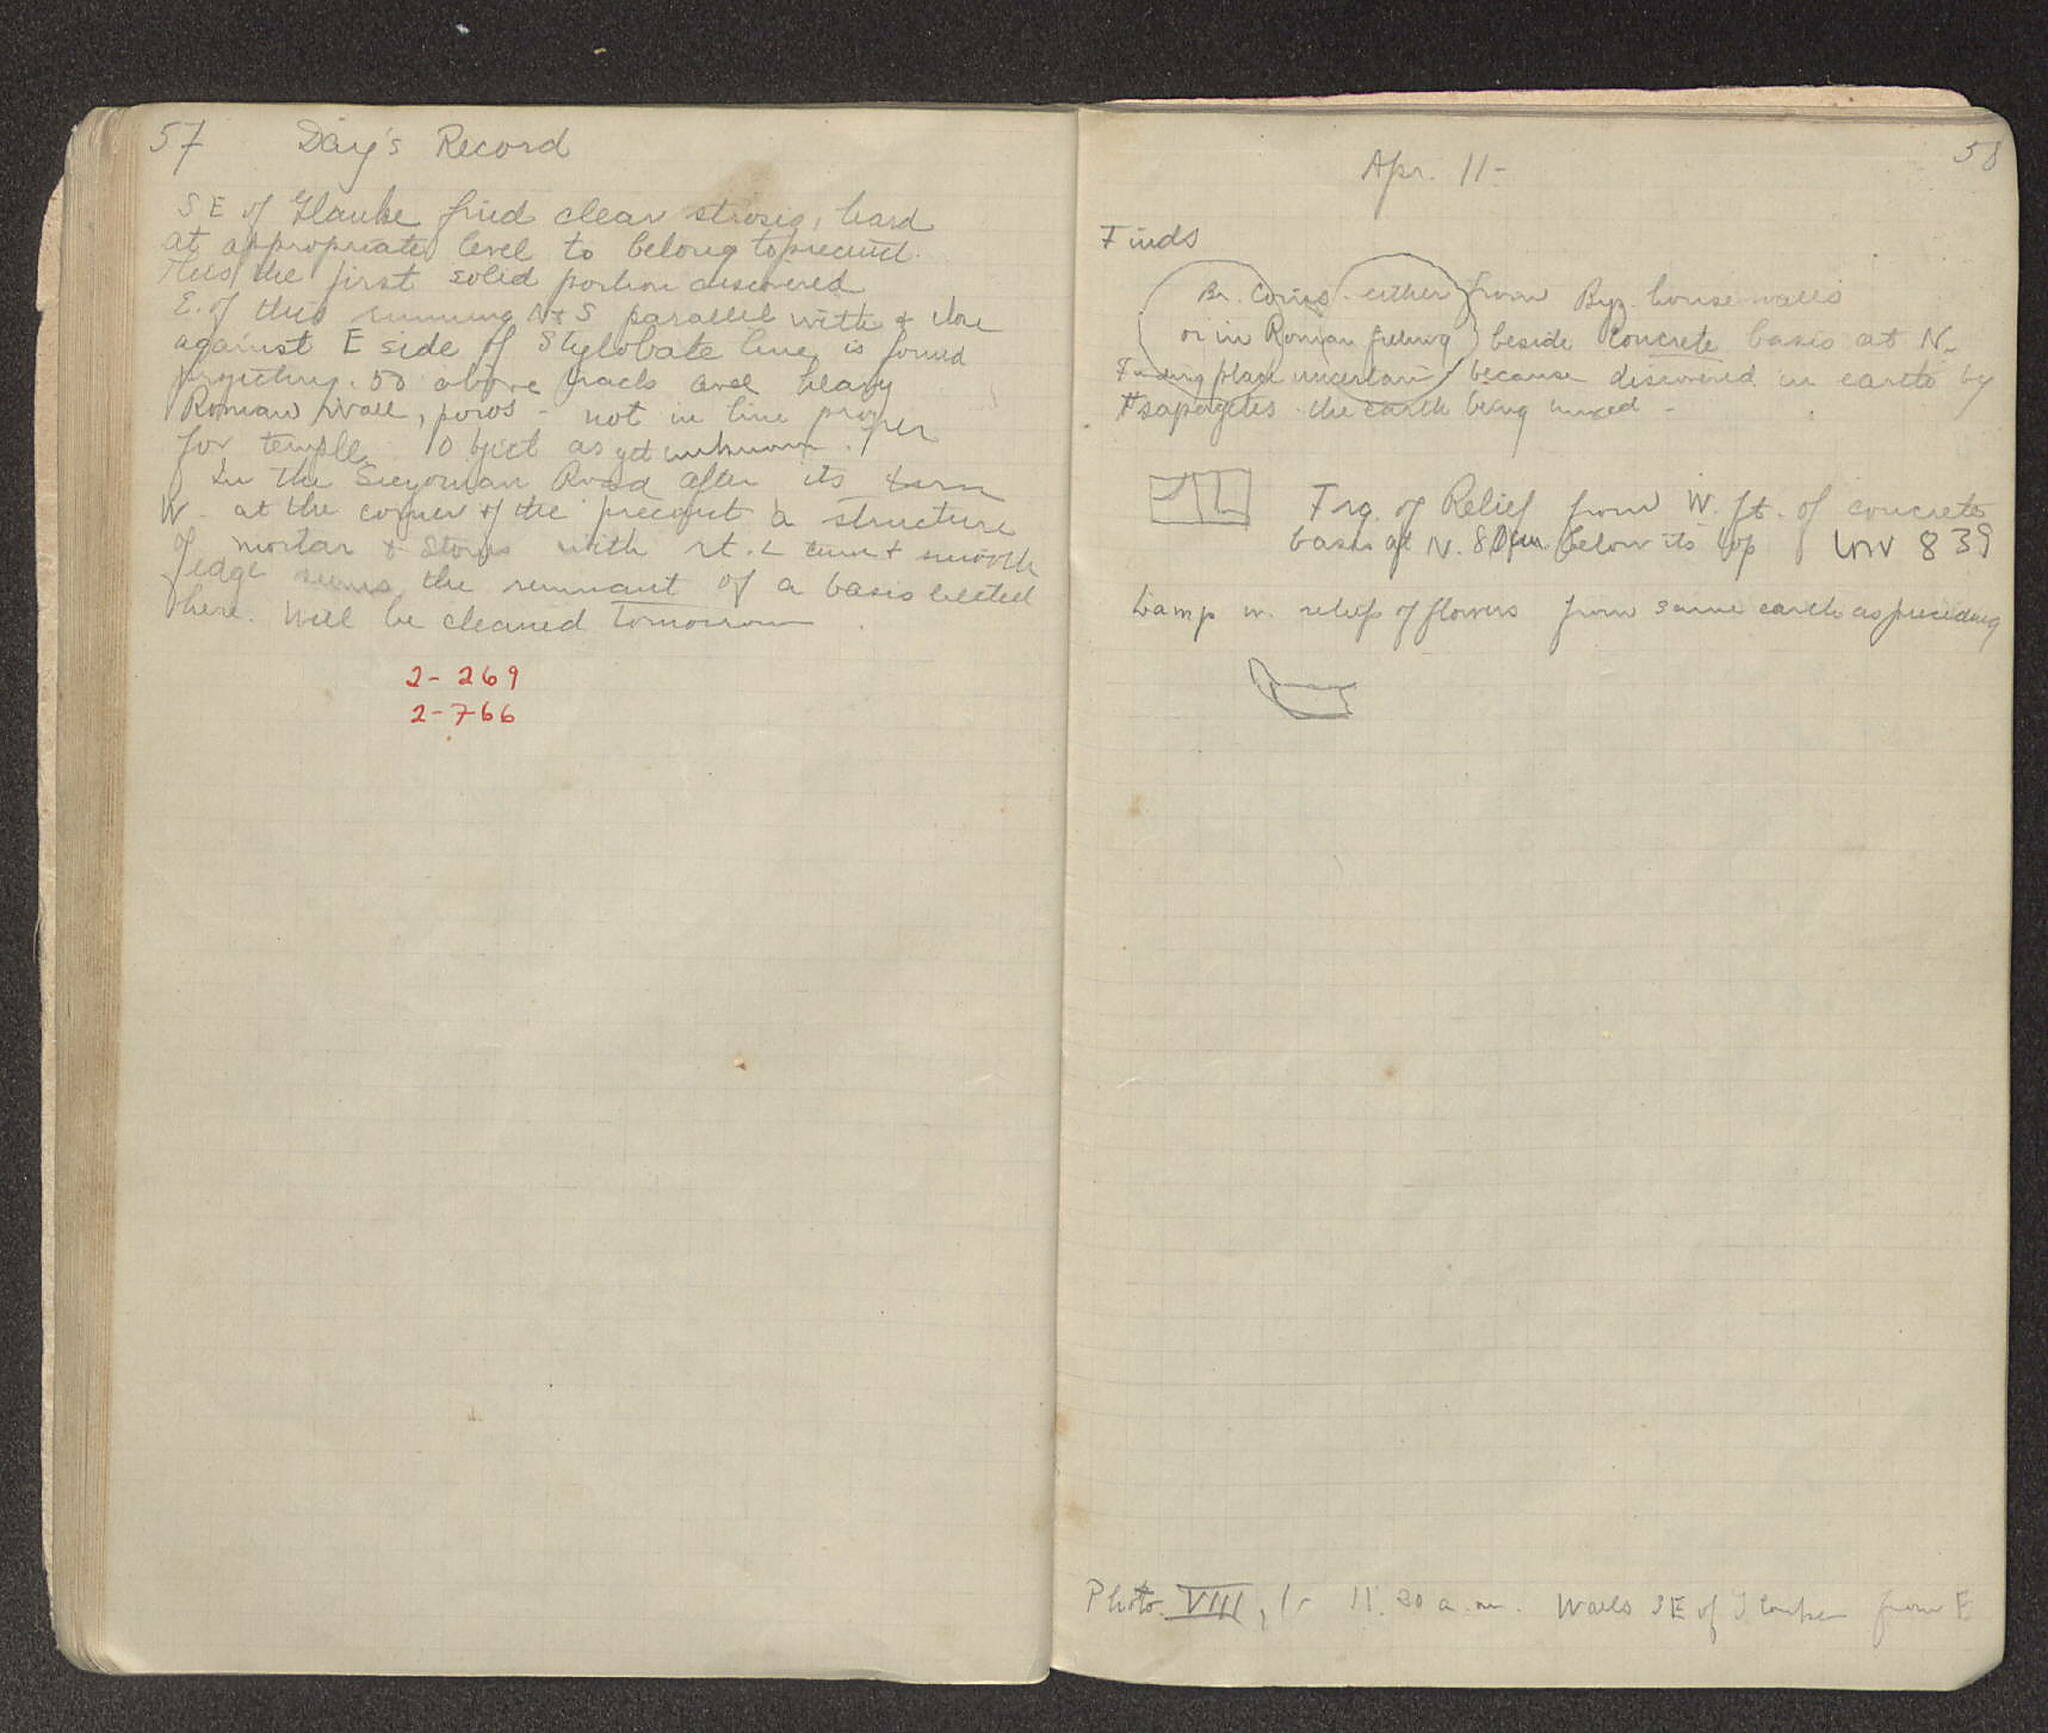 57 Day's Record
SE of Glauke find clear strosis, hard
at appropriate level to belong to precinct.
This the first solid portion discovered
E. of this running N & S parallel with & close
against E side of Stylobate line is found
projecting .50 above level heavy
Roman Wall, poros - not in line proper
for temple. Object as yet unknown.
In the Sicyonian Road after its turn
W. at the corner of the precinct a structure
of mortar & stones with rt. ∟ turn & smooth
edge seems the remnant of a basis erected
here. Will be cleaned tomorrow.
2 - 269
2 - 766
Apr. 11 - 58
Finds
Br. Coins - either from Byz. house walls
or in Roman filling beside concrete basis at N.
Finding place uncertain because discovered in earth by
tsapagetes the earth being mixed -
Frg. of Relief from W. ft. of concrete
basis at N. 80 cm. below its top INV 839
Lamp w. relief of flowers from same earth as preceding
Photo VIII, 1 - 11.20 a.m. Walls SE of Glauke from E